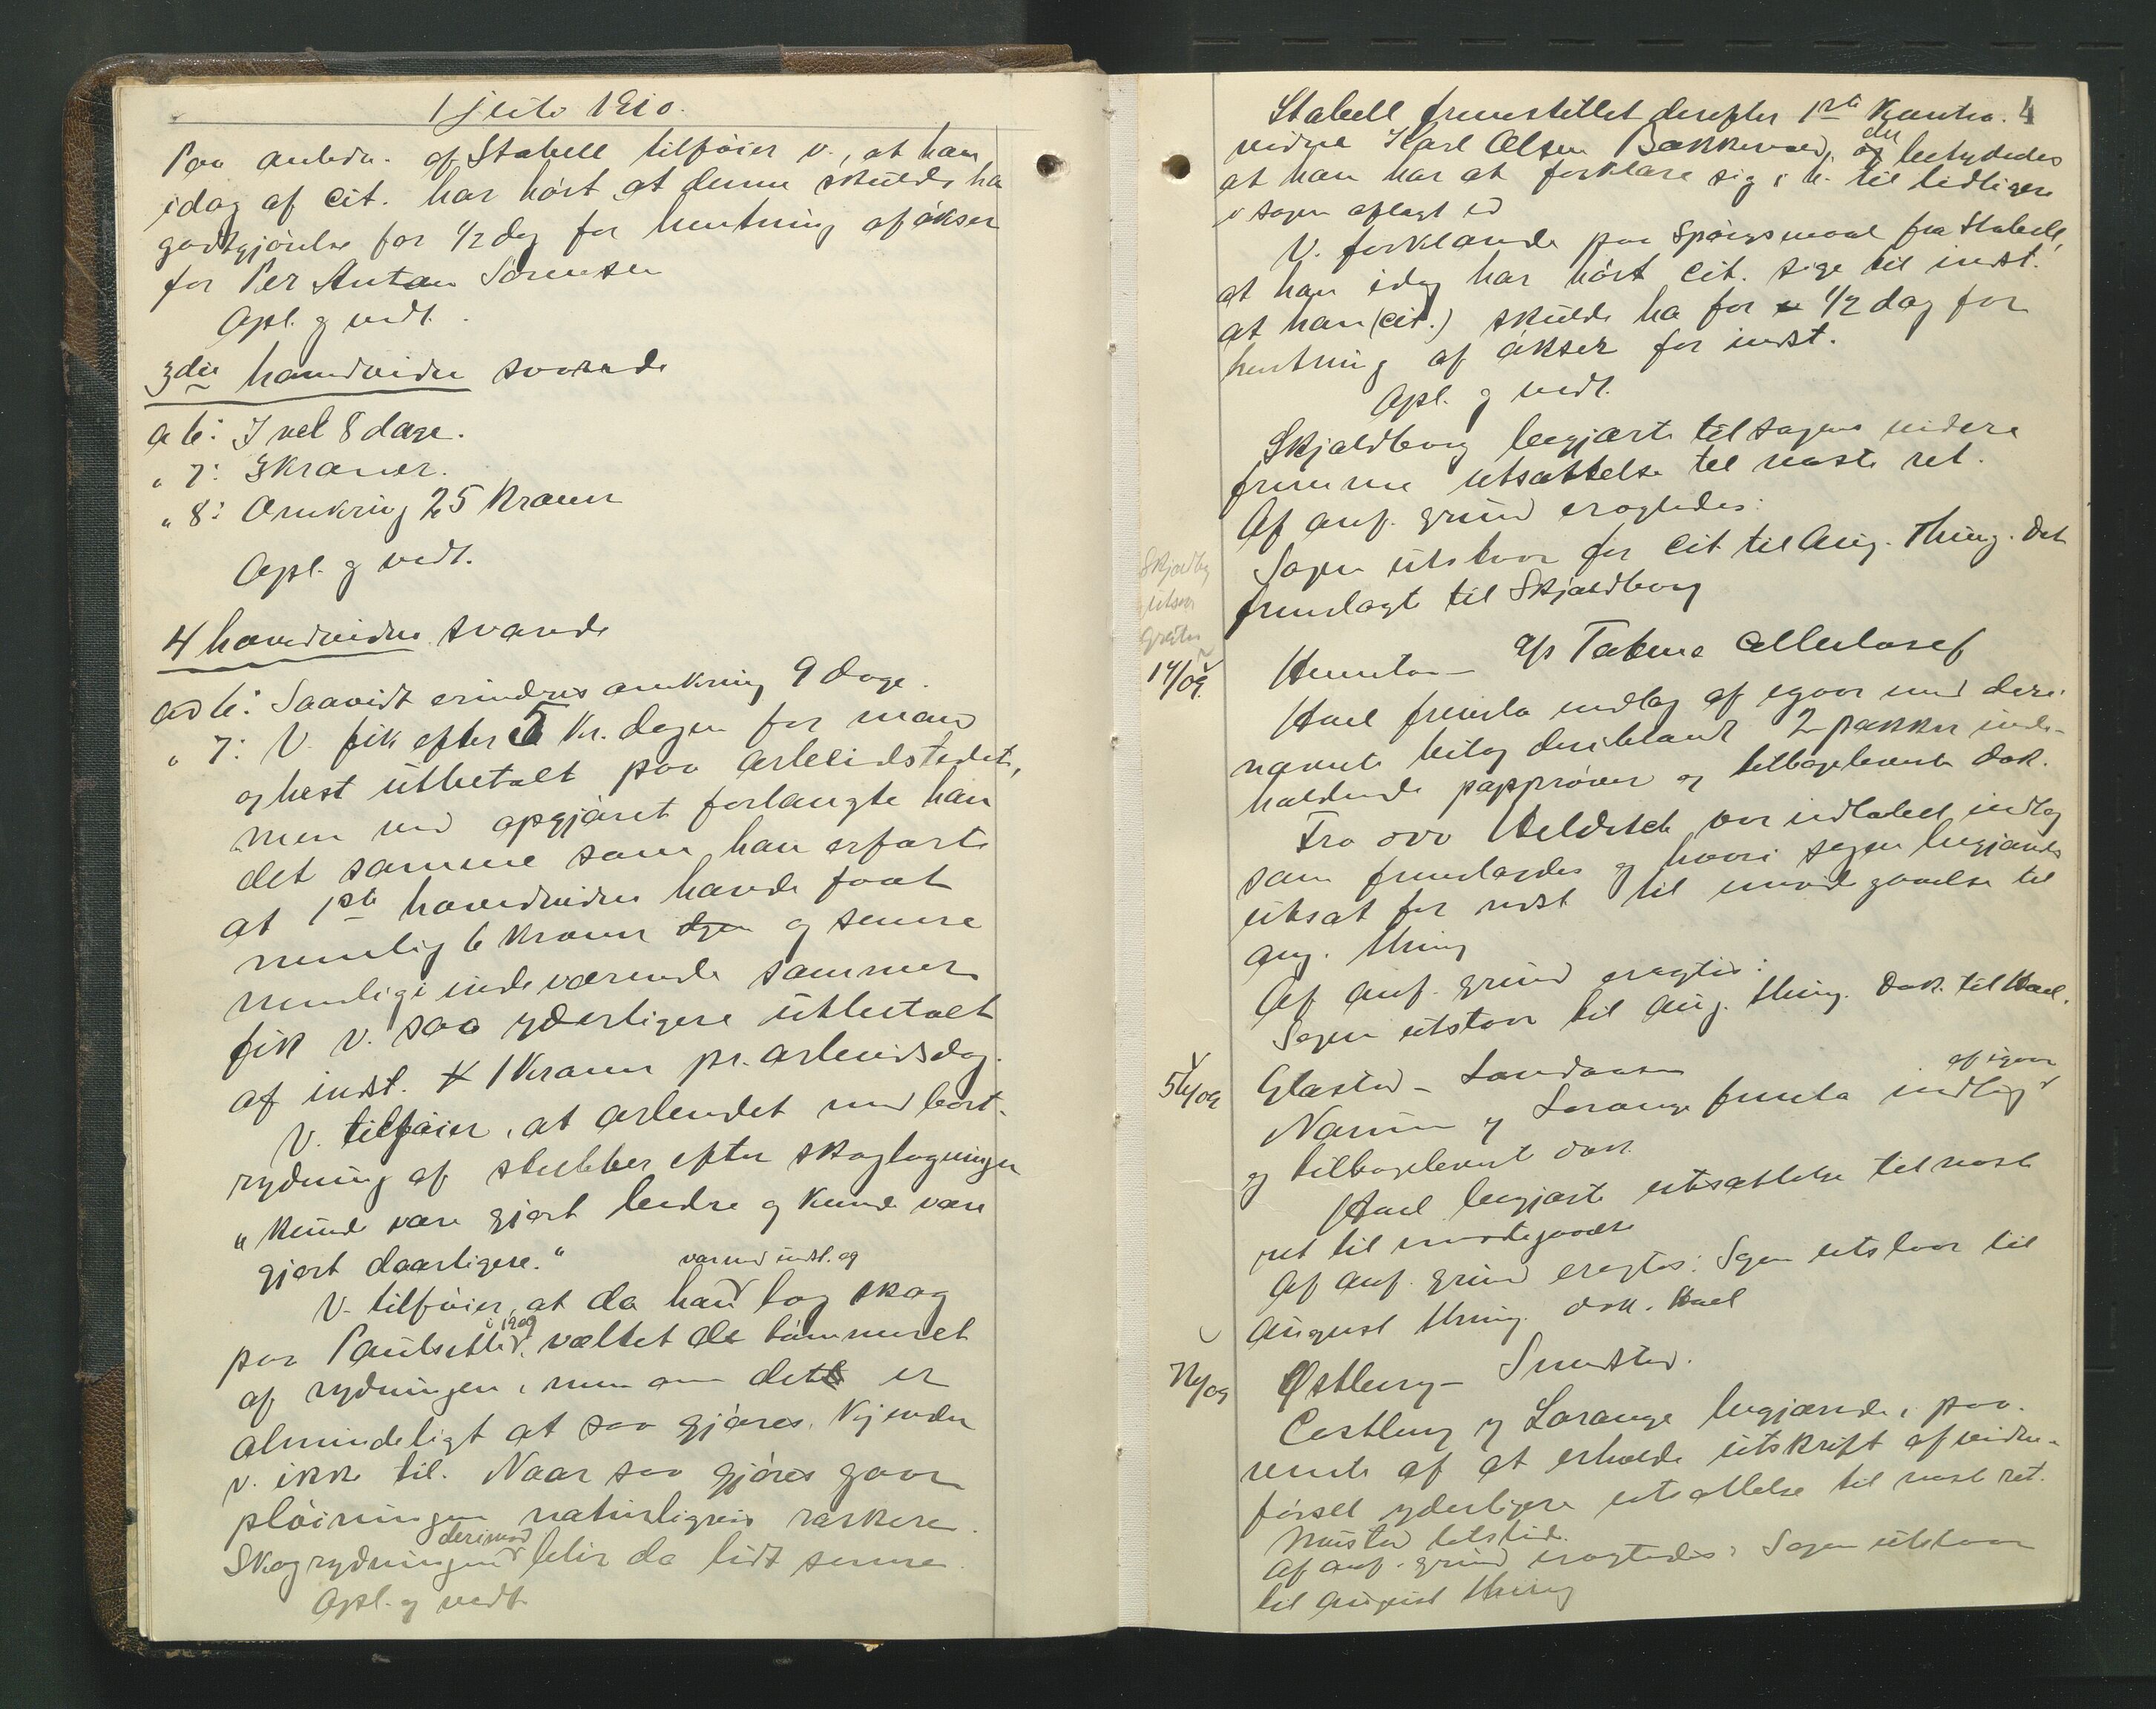 1 juli 1910.
Paa anledn. af Stabell tilføier v., at han
idag af cit. har hørt at denne skulde ha
godtgjørelse for 1/2 dag for hentning af økser
for Per Anton Sørensen
Opl. g vedt.
3die hovedvidne svarede
a 6: I vel 8 dage.
" 7: 3 kroner.
" 8: Omkring 25 Kroner
Opl. g vedt.
4 hovedvidne svarede
ad 6: Saavidt erindres omkring 9 dage.
" 7: V. fik efter 5 Kr. dagen for mand
og hest utbetalt paa arbeidstedet,
men ved opgjøret forlangte han
det samme som han erfarte
at 1ste hovedvidne havde faat
nemlig 6 kroner dgen og senere
nemlig i indeværende sommer
fik v. saa yderligere utbetalt
af indst. 1 Krone pr. arbeidsdag.
V. tilføier, at arbeidet med bort-
rydning af stubber efter skogtagningen
"kunde være gjort bedre og kunde være
gjort daarligere."
var ved indst. og
V. tilføier, at da han tog skog
i 1909
paa Paulsetter, væltet de tømmeret
af rydningen, men om dette er
almindeligt at saa gjøres. Kjender
v. ikke til. Naar saa gjøres gaar
pløiningen naturligvis raskere.
derimod
Skogrydningen blir da lidt senere.
Opl. g vedt.
4
Stabell fremstillet derefter 1ste Kontra.
vidne Karl Olsen Bakkerud, der betydedes
at han har at forklare sig i h. til tidligere
i sagen aflagt ed
V. forklarede paa spørgsmaal fra Stabell,
at han idag har hørt cit. sige til indst.
at han (cit.) skulde ha for 1/2 dag for
hentning af økser for indst.
Opl. g vedt.
Skjoldborg begjærte til sagens videre
fremme utsættelse til næste ret.
Af anf. grund eragtedes:
Sagen utstaar for cit. til Aug. thing. Dok
fremlagt til Skjoldborg
14/09. a/s Toten Cellulosef
Hael fremla indlæg af igaar med deri
nævnte bilag deriblandt 2 pakker inde-
holdende papprøver og tilbageleverte dok.
Fra ovr Heldich var indløbet indlæg
som fremlagdes og hvori sagen begjæredes
utsat for indst til imødegaaelse til
aug. thing
Af anf. grund eragtes:
Sagen utstaar til Aug. thing. Dok. til Hael.
Glæstad -
af igaar
og Lorange fremla indlæg
og tilbageleverte dok.
Hael begjærte utsættelse til næste
ret til imødegaaelse
Af anf. grund eragtes: Sagen utstaar til
August thing. dok. Hael
Østberg -
Oestberg og Lorange begjærede, paa-
vente af at erholde utskrift af vidne-
førsel yderligere utsættelse til næste ret.
Af anf. grund eragtedes: Sagen utstaar
til August thing